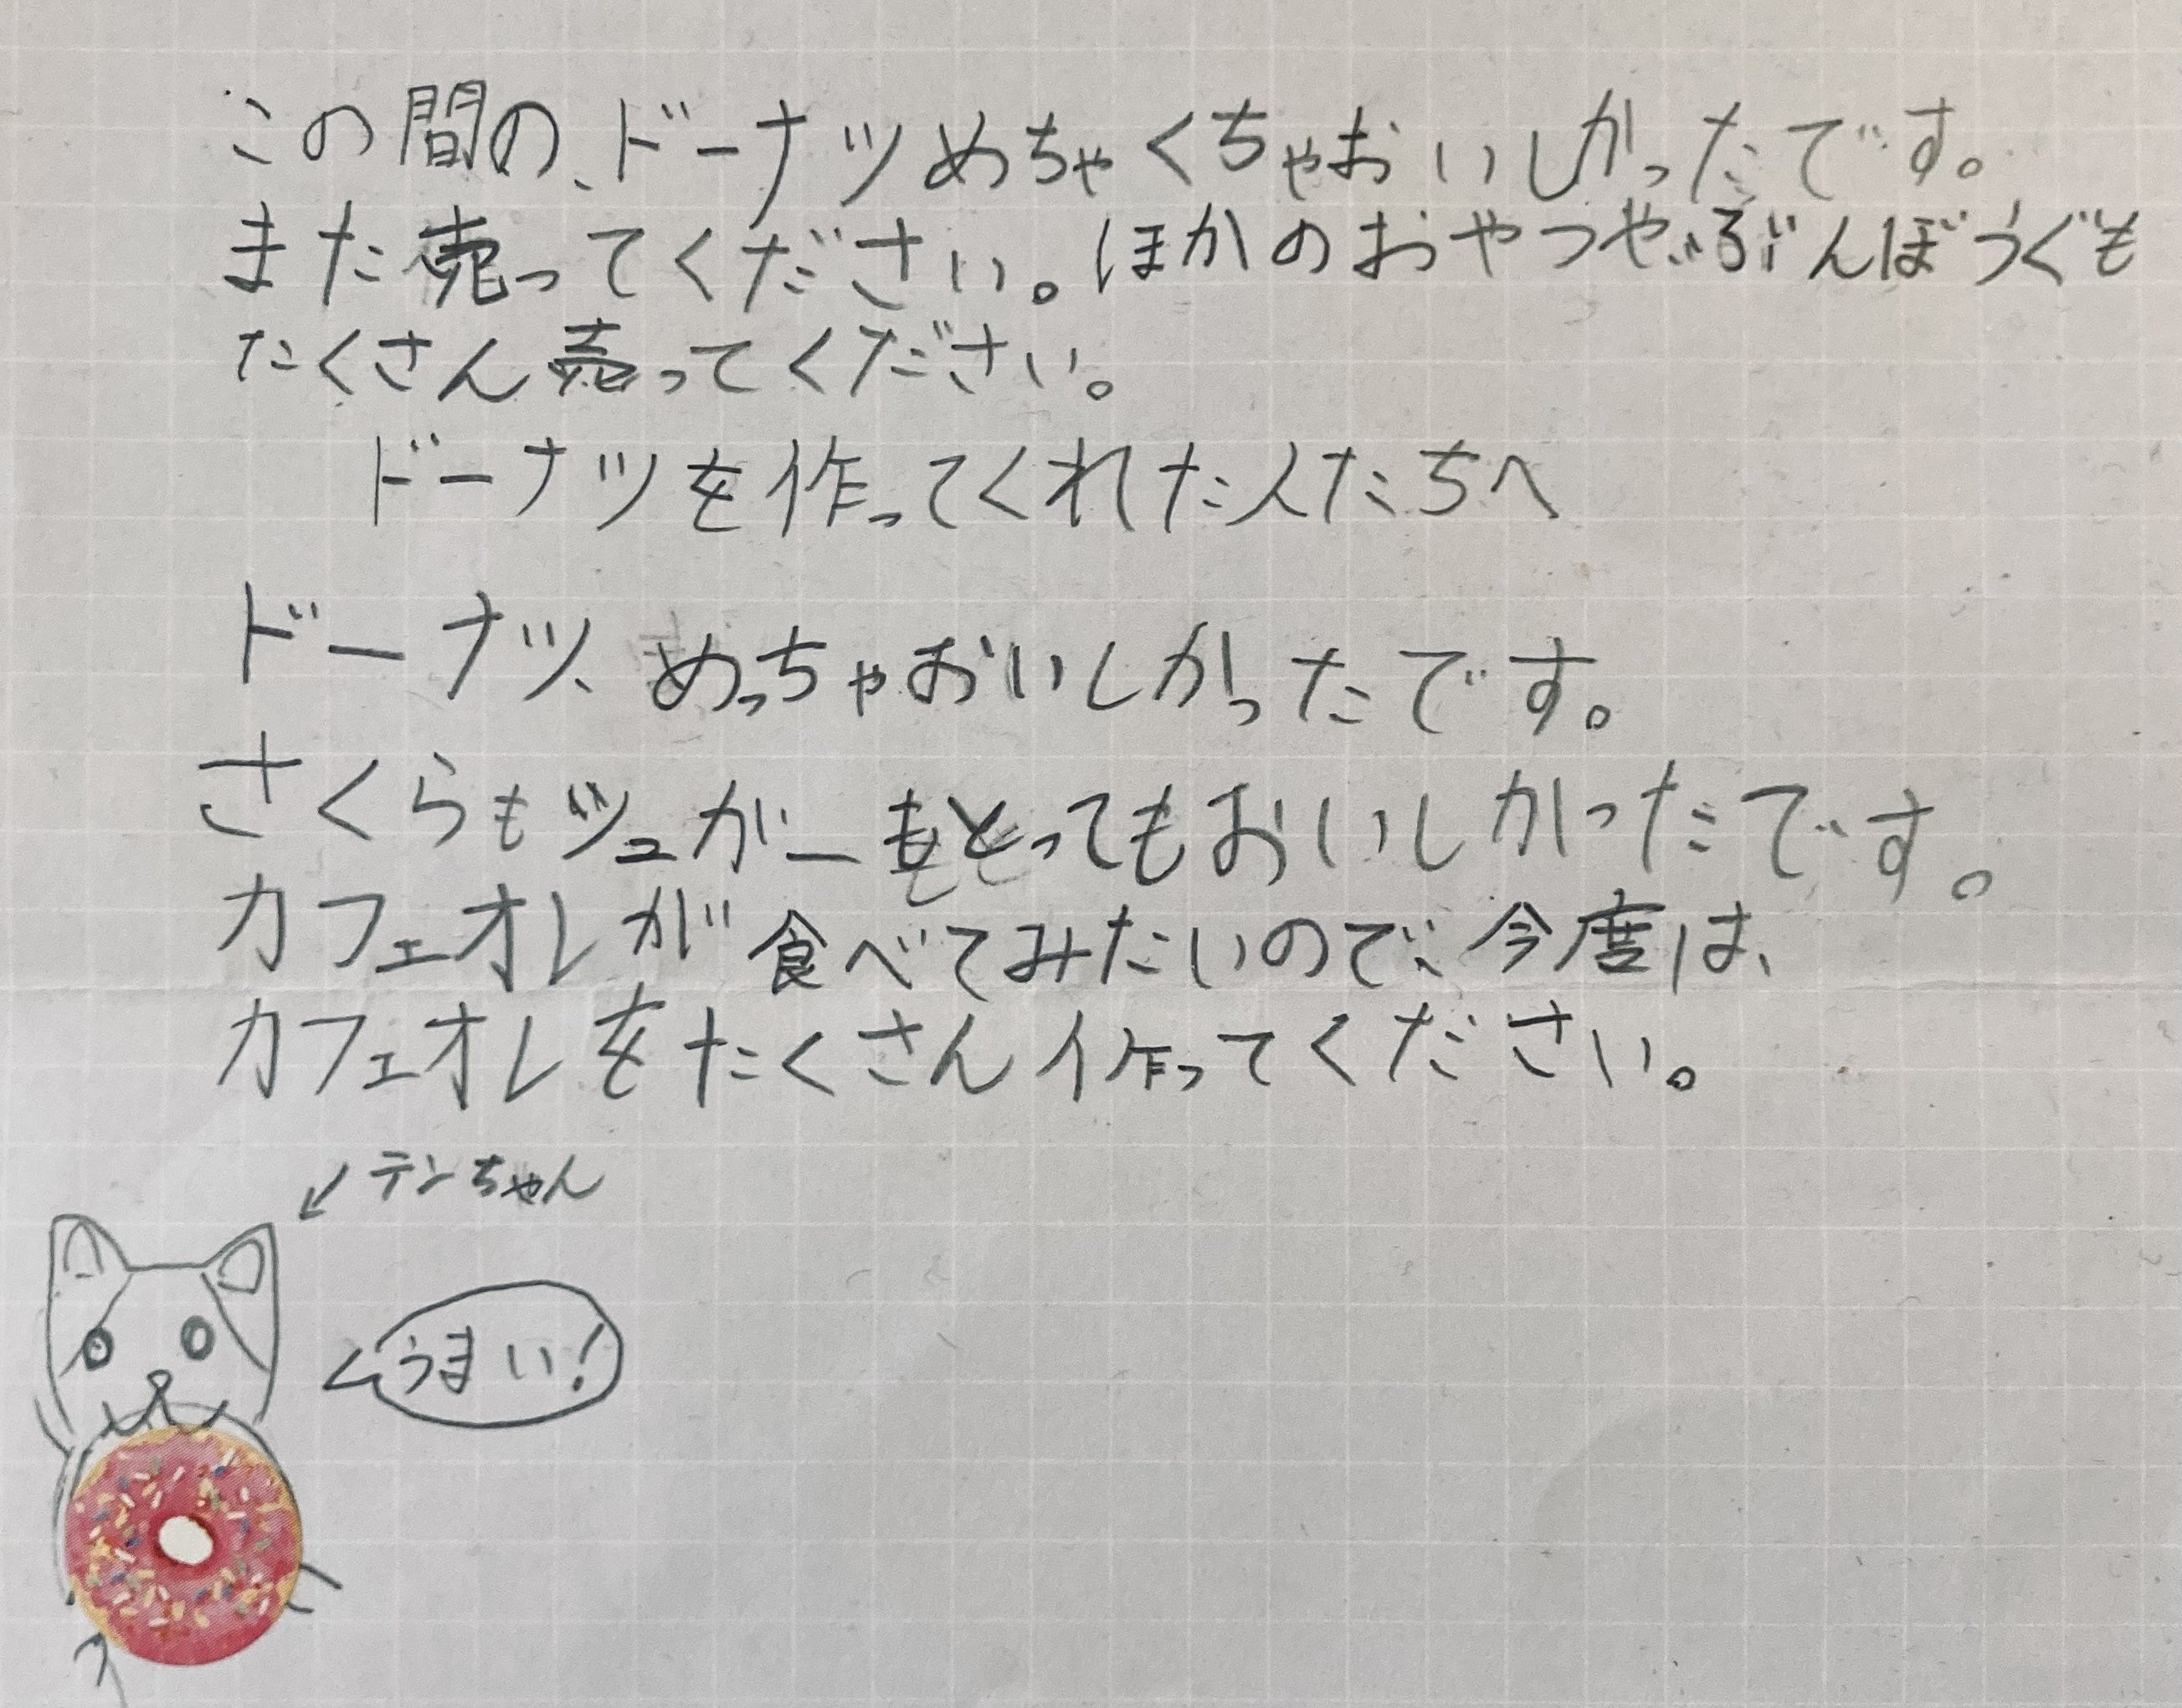 この間の、ドーナツめちゃくちゃおいしかったです。
また売ってください。ほかのおやつや、ぶんぼうぐも
たくさん売ってください。
ドーナツを作ってくれた人たちへ
ドーナツ、めっちゃおいしかったです。
さくらもシュガーもとってもおいしかったです。
カフェオレが食べてみたいので、今度は、
カフェオレをたくさん作ってください。
テンちゃん
うまい!